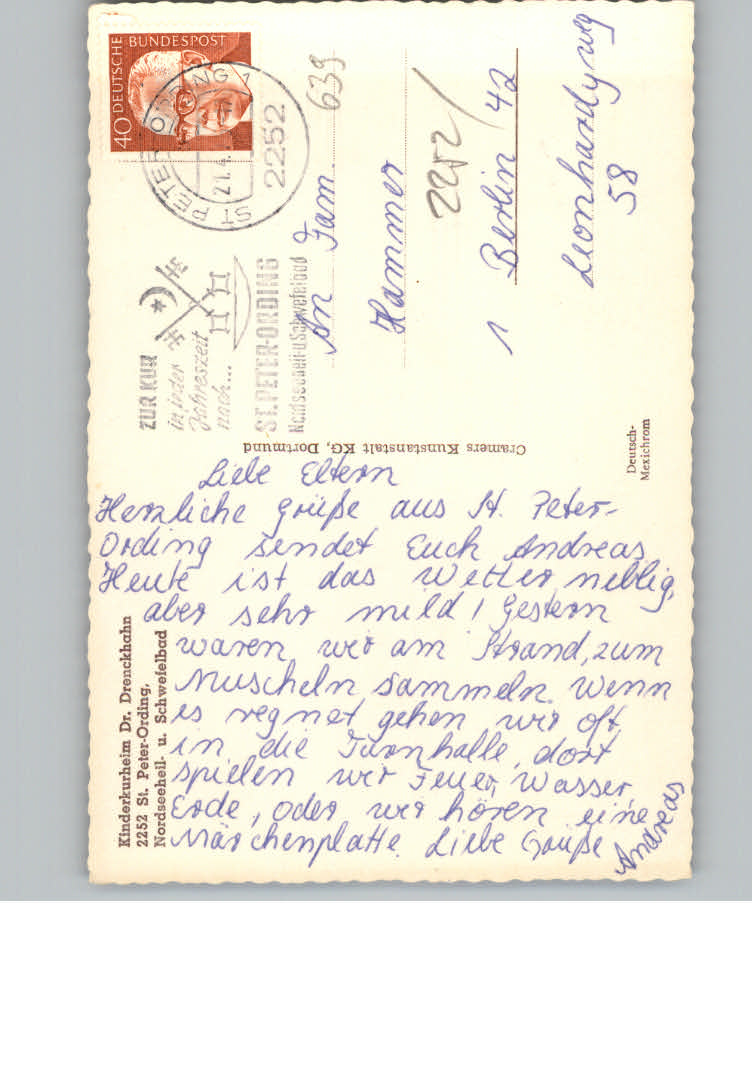 DEUTSCHE BUNDESPOST
40
ST PETER-ORDING 1
21.4.
2252
ZUR KUR
in jeder
Jahreszeit
nach...
ST. PETER-ORDING
Nordseeheil-u Schwefelbad
639
An Fam.
Hammer
2252
1 Berlin 42
Leonhardyweg
58
Cramers Kunstanstalt KG, Dortmund
Deutsch-
Mexichrom
Kinderkurheim Dr. Drenckhahn
2252 St. Peter-Ording,
Nordseeheil- u. Schwefelbad
Liebe Eltern
Herzliche Grüße aus St. Peter-
Ording sendet Euch Andreas
Heute ist das Wetter neblig,
aber sehr mild! Gestern
waren wir am Strand, zum
Muscheln sammeln. Wenn
es regnet gehen wir oft
in die Turnhalle, dort
spielen wir Feuer, Wasser,
Erde, oder wir hören eine
Märchenplatte. Liebe Grüße
Andreas